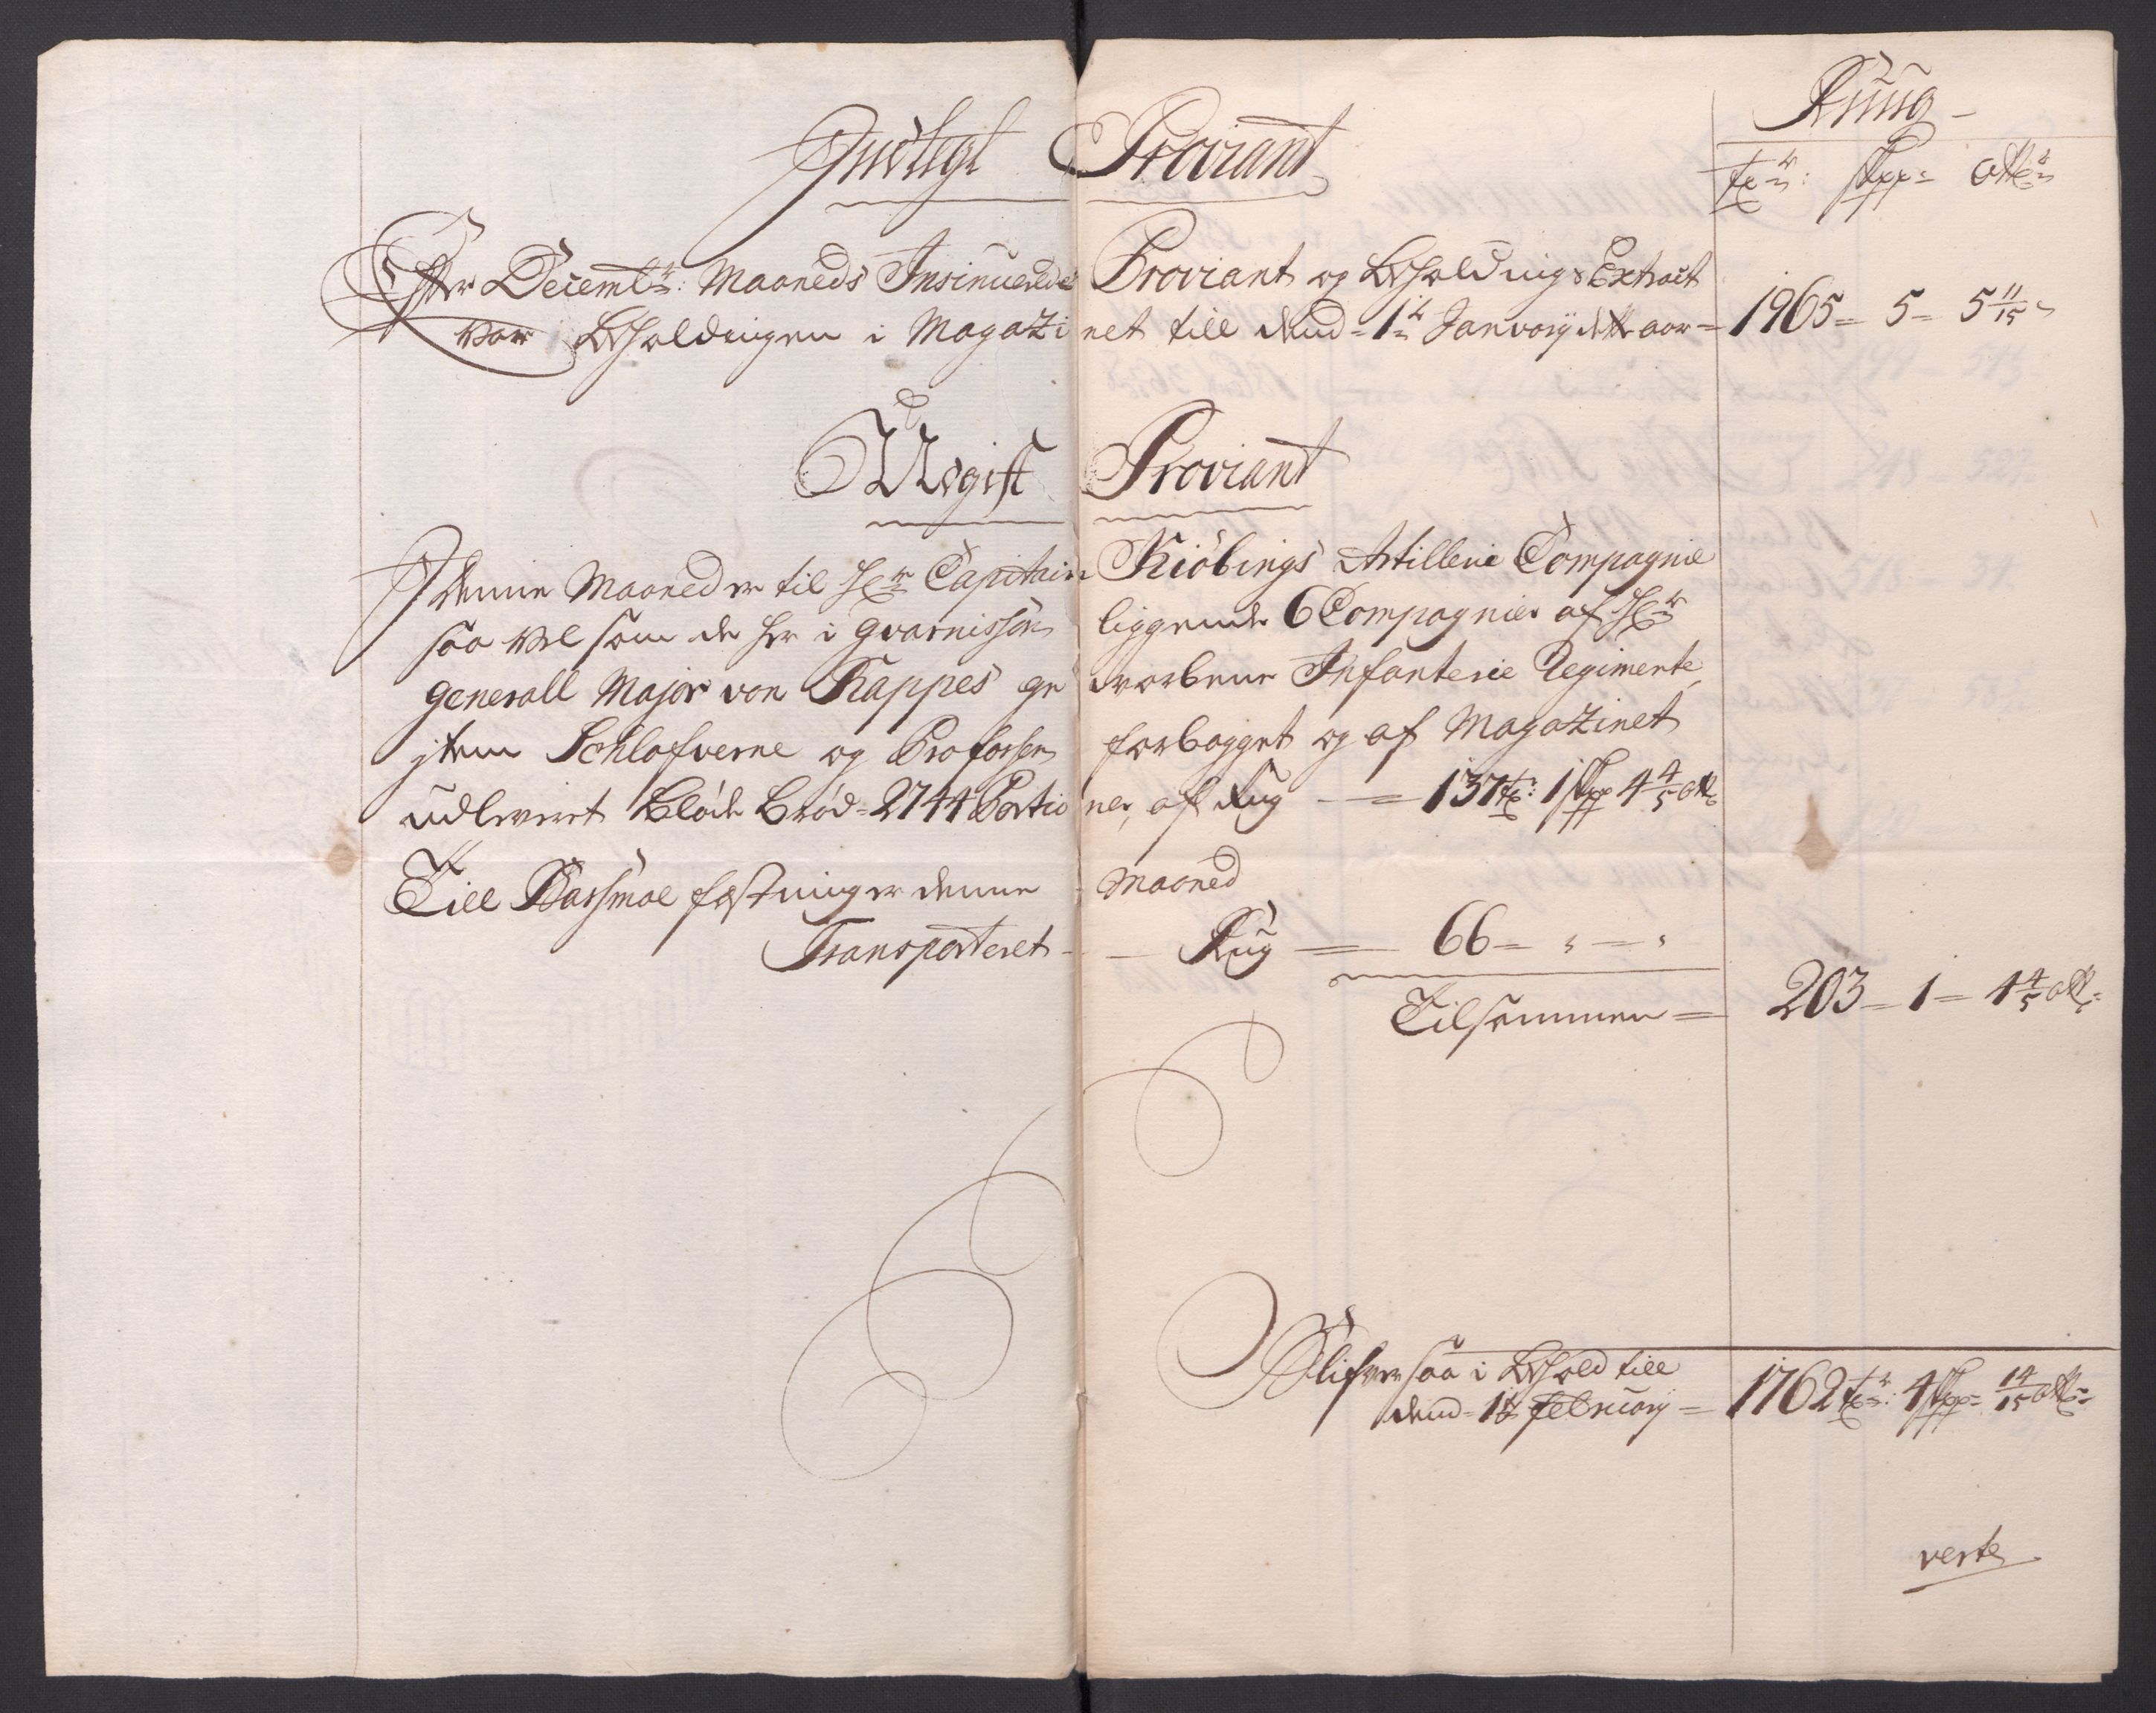 Rŭŭg
tr: skpp: ott:
Indtegt Proviant
Efter Decembr: Maaneds Insinuerede Proviant og Beholdnings Extract
var Beholdningen i Magazinet till dend 1te Janvarij dette aar 1965 = 5 = 5 11/15
Udgift Proviant
I denne Maaned er til Hr Capitain Kiöbings Artillerie Compagnie
saa vel som de her i gvarnisson liggende 6 Compagnier af Hr
generall Major von Kappes gevorbene Infanterie Regimente,
jtem Schlafverne og Profossen forbagget og af Magazinet
udleveret bløde brød = 2744 Portioner, af Rug = 137 tr: 1 skpp 4 4/5 ott
Till Basmoe fæstning er denne Maaned
Transporteret Rug = 66 = " = "
Tilsammen = 203 = 1 = 4 4/5 ott:
Blifver saa i Behold till
dend 1te February = 1762 tr: 4 skpp = 14/15 ott:
verte